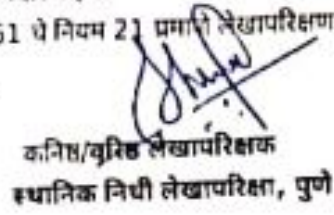 61 चे नियम 21 प्रमाणे लेखापरिक्षण
कनिष्ठ/वरिष्ठ लेखापरिक्षक
स्थानिक निधी लेखापरिक्षा, पुणे